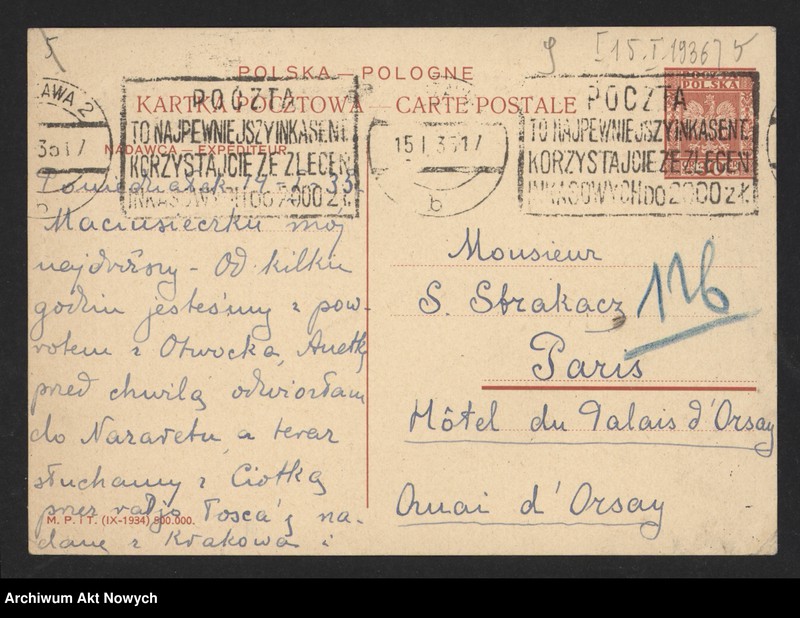 5
9 [15.I.1936] 5
POLSKA — POLOGNE
KARTKA POCZTOWA — CARTE POSTALE
NADAWCA — EXPÉDITEUR
POCZTA
TO NAJPEWNIEJSZY INKASENT.
KORZYSTAJCIE ZE ZLECEŃ
INKASOWYCH DO 2000 ZŁ.
15.I.35 17
b
POCZTA
TO NAJPEWNIEJSZY INKASENT.
KORZYSTAJCIE ZE ZLECEŃ
INKASOWYCH DO 2000 ZŁ.
POLSKA
AWA 2
35 17
Poniedziałek 14 - I - 35
Maciusieczku mój
najdroższy - Od kilku
godzin jesteśmy z pow-
rotem z Otwocka, Anetkę
przed chwilą odwiozłam
do Nazaretu, a teraz
słuchamy z Ciotką
przez radjo Tosca'ę na-
dane z Krakowa i
M. P. i T. (IX-1934) 800.000.
Monsieur
S. Strakacz
126
Paris
Hôtel du Palais d'Orsay
Quai d'Orsay
Archiwum Akt Nowych